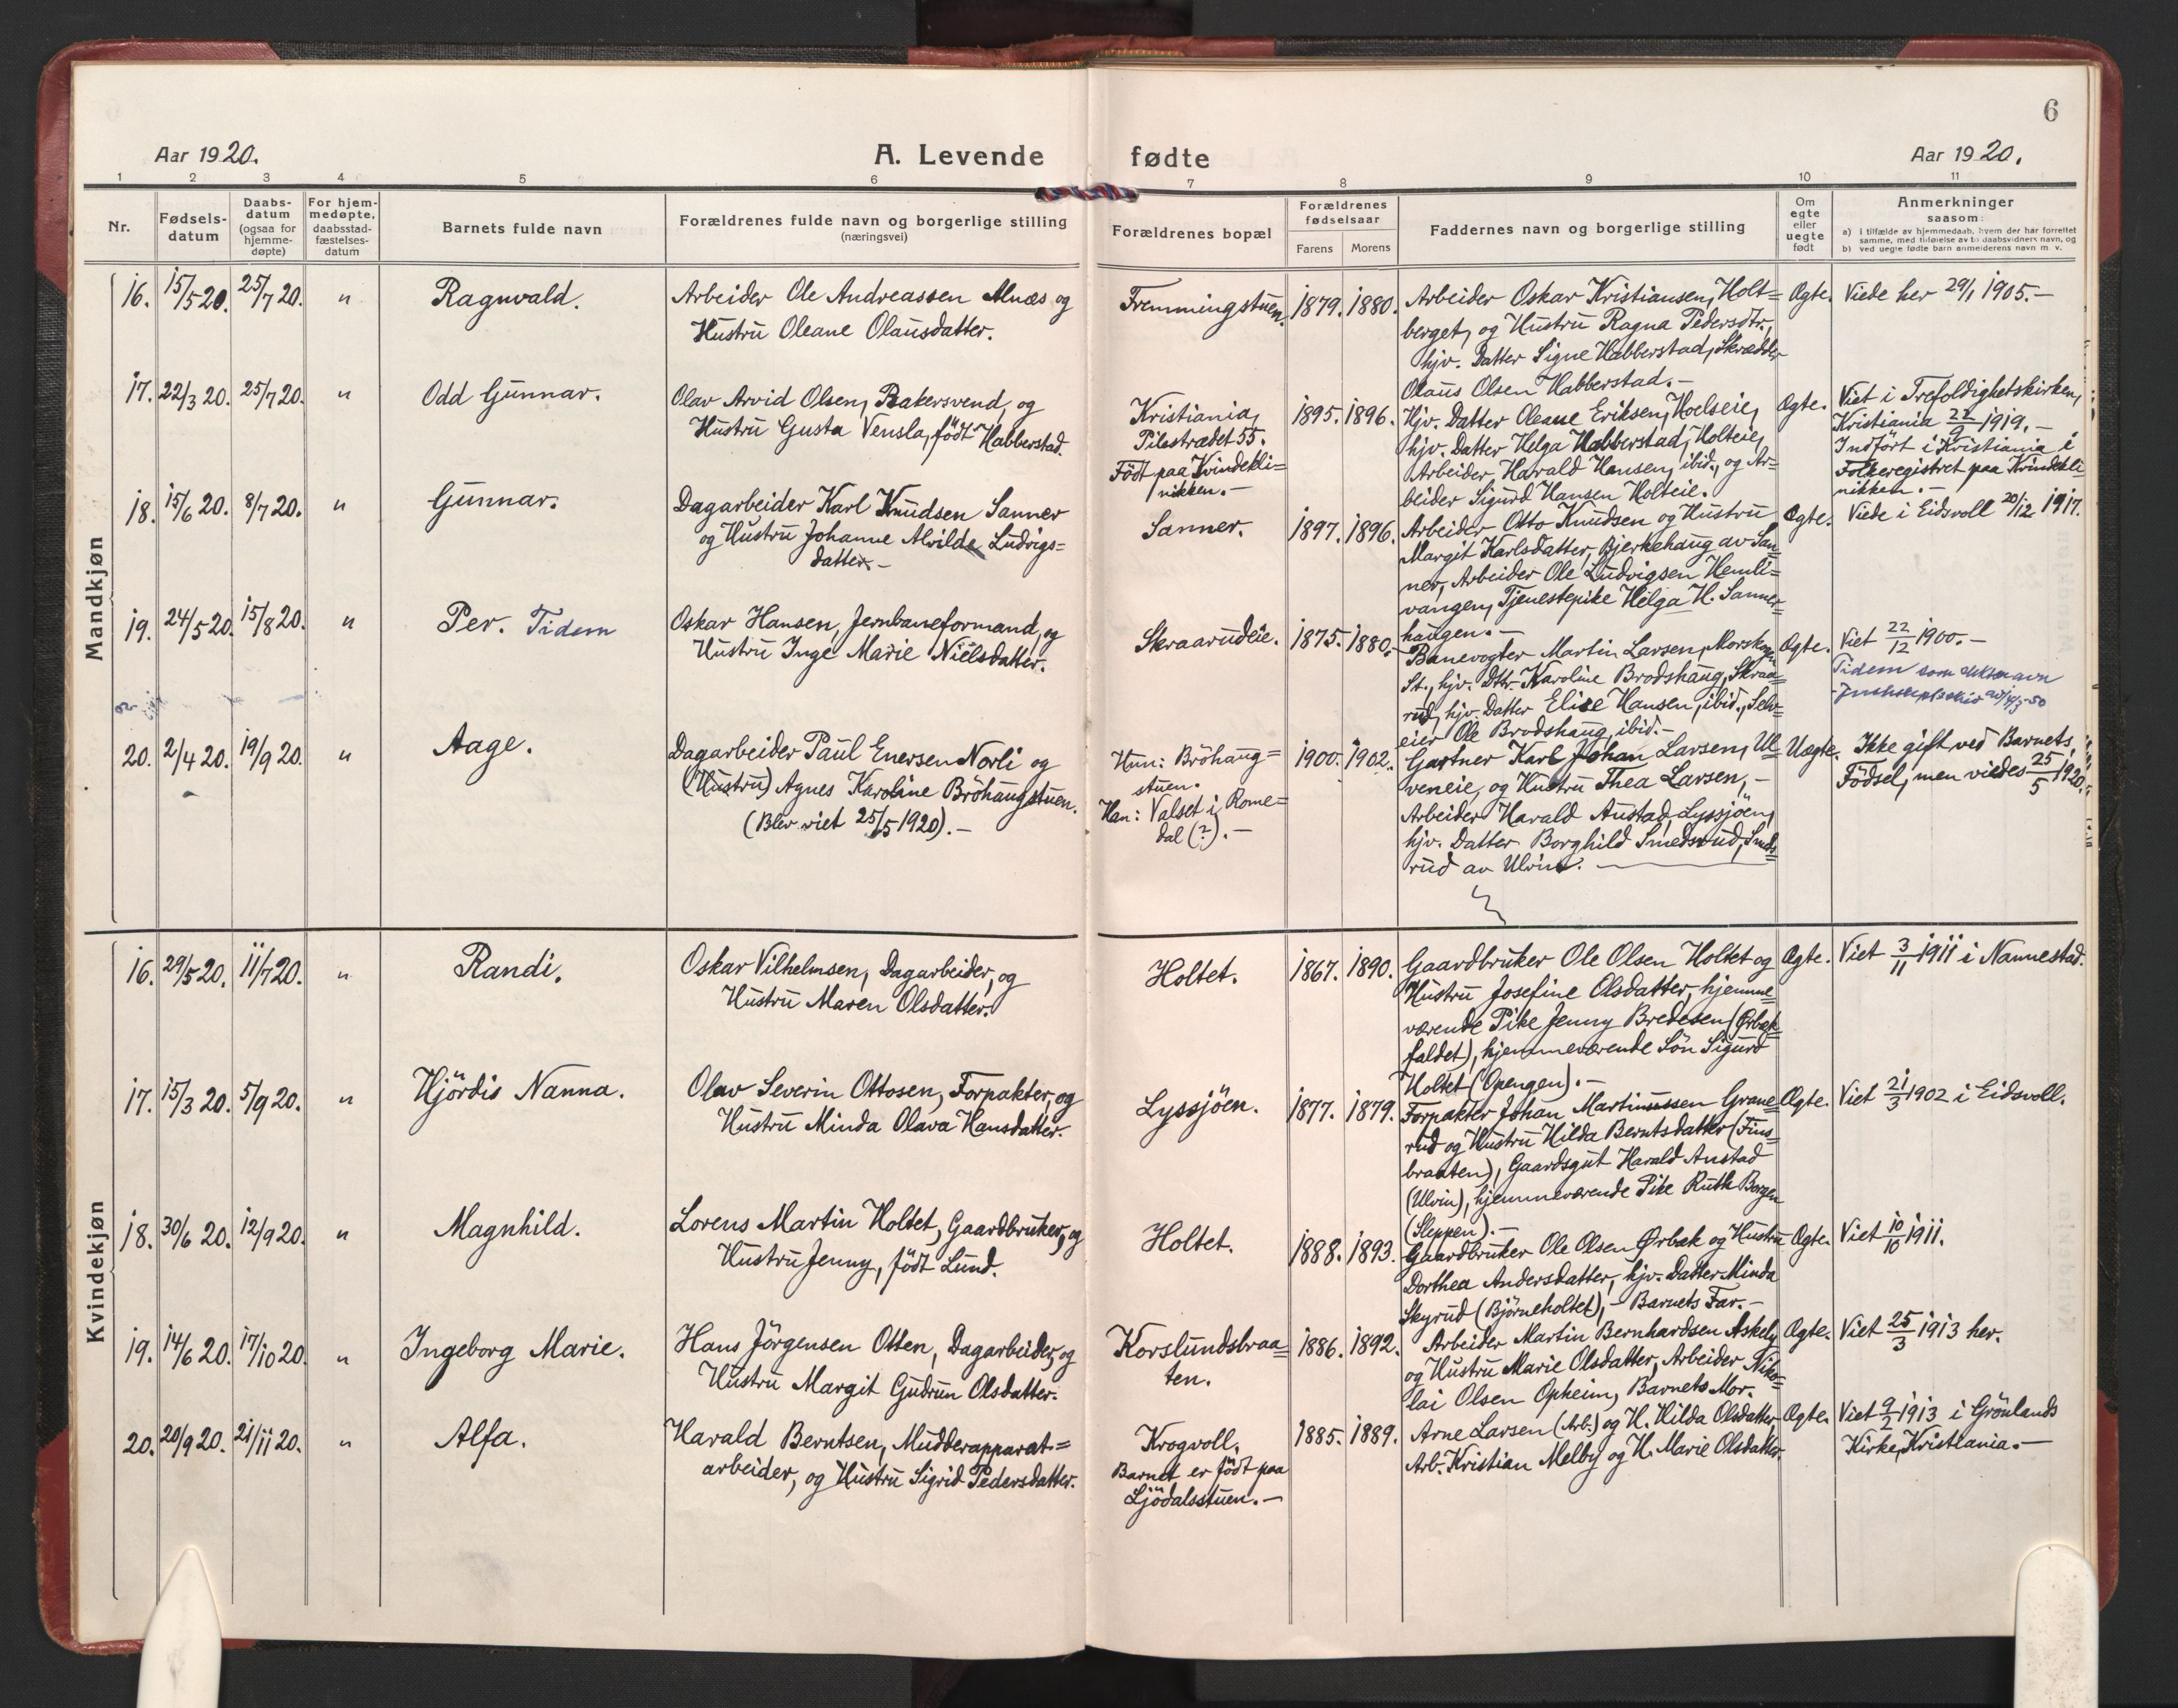 6
Aar 1920.
A. Levende fødte
Aar 1920.
1 2 3 4 5 6 7 8 9 10 11
Nr.
Fødsels-
datum
Daabs-
datum
(ogsaa for
hjemme-
døpte)
For hjem-
medøpte,
daabsstad-
fæstelses-
datum
Barnets fulde navn
Forældrenes fulde navn og borgerlige stilling
(næringsvei)
Forældrenes bopæl
Forældrenes
fødselsaar
Farens Morens
Faddernes navn og borgerlige stilling
Om
egte
eller
uegte
født
Anmerkninger
saasom:
a) i tilfælde av hjemmedaab, hvem der har forrettet
samme, med tilføielse av to daabsvidners navn, og
b) ved uegte fødte barn anmelderens navn m. v.
Mandkjøn
16. 15/5 20. 25/7 20. " Ragnvald.
Arbeider Ole Andreassen Alnæs og
Hustru Oleane Olausdatter.
Fremmingstuen. 1879. 1880.
Arbeider Oskar Kristiansen, Holt=
berget, og Hustru Ragna Pedersdtr.,
hjv. Datter Signe Habberstad, Skrædder
Olaus Olsen Habberstad.-
Ægte. Viede her 29/1 1905.-
17. 22/3 20. 25/7 20. " Odd Gunnar.
Olav Arvid Olsen, Bakersvend, og
Hustru Gusta Vensla, født Habberstad.
Kristiania,
Pilestrædet 55.
Født paa Kvindekli=
nikken.-
1895. 1896.
Hjv. Datter Oleane Eriksen, Hoelseie,
hjv. Datter Helga Habberstad, Holteie,
Arbeider Harald Hansen, ibid., og Ar=
beider Sigurd Hansen Holteie.
Ægte. Viet i Trefoldighetskirken,
Kristiania 22/9 1919.-
Indført i Kristiania i
Folkeregistret paa Kvindekli
nikken.-
18. 15/6 20. 8/7 20. " Gunnar.
Dagarbeider Karl Knudsen Sanner
og Hustru Johanne Alvilde Ludvigs=
datter.-
Sanner. 1897. 1896.
Arbeider Otto Knudsen og Hustru
Margit Karlsdatter, Bjerkehaug av San=
ner, Arbeider Ole Ludvigsen Hemli=
vangen, Tjenestepike Helga H. Sanner=
haugen.-
Ægte. Viede i Eidsvoll 20/12 1917.
19. 24/5 20. 15/8 20. " Per. Tidem
Oskar Hansen, Jernbaneformand, og
Hustru Inge Marie Nielsdatter.
Skraarudeie. 1875. 1880.
Banevogter Martin Larsen, Morskogen
St., hjv. Dttr. Karoline Brodshaug, Skraa=
rud, hjv. Datter Elise Hansen, ibid., Selv=
eier Ole Brodshaug, ibid.-
Ægte. Viet 22/12 1900.-
Tidem som
20. 2/4 20. 19/9 20. " Aage.
Dagarbeider Paul Enersen Norli og
(Hustru) Agnes Karoline Brøhaugstuen.
(Blev viet 25/5 1920).-
Hun: Brøhaug=
stuen.
Han: Valset i Rome=
dal (?).-
1900. 1902.
Gartner Karl Johan Larsen, Ul=
veneie, og Hustru Thea Larsen,-
Arbeider Harald Austad, Lyssjøen,
hjv. Datter Borghild Smedsrud, Smeds=
rud av Ulvin.
Uægte. Ikke gift ved Barnets
Fødsel, men viedes 25/5 1920.
Kvindekjøn
16. 29/5 20. 11/7 20. " Randi.
Oskar Vilhelmsen, Dagarbeider, og
Hustru Maren Olsdatter.
Holtet. 1867. 1890.
Gaardbruker Ole Olsen Holtet og
Hustru Josefine Olsdatter, hjemme=
værende Pike Jenny Bredesen (Ørbæk=
faldet), hjemmeværende Søn Sigurd
Holtet (Opengen).-
Ægte. Viet 3/11 1911 i Nannestad.
17. 15/3 20. 5/9 20. " Hjørdis Nanna.
Olav Severin Ottosen, Forpakter, og
Hustru Minda Olava Hansdatter.
Lyssjøen. 1877. 1879.
Forpakter Johan Martinussen Grane=
rud og Hustru Hilda Berntsdatter (Fins=
braaten), Gaardsgut Harald Austad
(Ulvin), hjemmeværende Pike Ruth Borgen
(Sleppen).-
Ægte. Viet 21/3 1902 i Eidsvoll.
18. 30/6 20. 12/9 20. " Magnhild.
Lorens Martin Holtet, Gaardbruker, og
Hustru Jenny, født Lund.
Holtet. 1888. 1893.
Gaardbruker Ole Olsen Ørbæk og Hustru
Dorthea Andersdatter, hjv. Datter Minda
Skyrud (Bjørneholtet),- Barnets Far.-
Ægte. Viet 10/10 1911.
19. 14/6 20. 17/10 20. " Ingeborg Marie.
Hans Jørgensen Otten, Dagarbeider, og
Hustru Margit Gudrun Olsdatter.
Korslundsbraa=
ten.
1886. 1892.
Arbeider Martin Bernhardsen Askely
og Hustru Marie Olsdatter, Arbeider Niko=
lai Olsen Opheim, Barnets Mor.
Ægte. Viet 25/3 1913 her.
20. 20/9 20. 21/11 20. " Alfa.
Harald Berntsen, Mudderapparat=
arbeider, og Hustru Sigrid Pedersdatter.
Krogvoll.
Barnet er født paa
Ljødalsstuen.-
1885. 1889.
Arne Larsen (Arb.) og H. Hilda Olsdatter,
Arb. Kristian Melby og H. Marie Olsdatter.
Ægte. Viet 9/2 1913 i Grønlands
Kirke, Kristiania.-